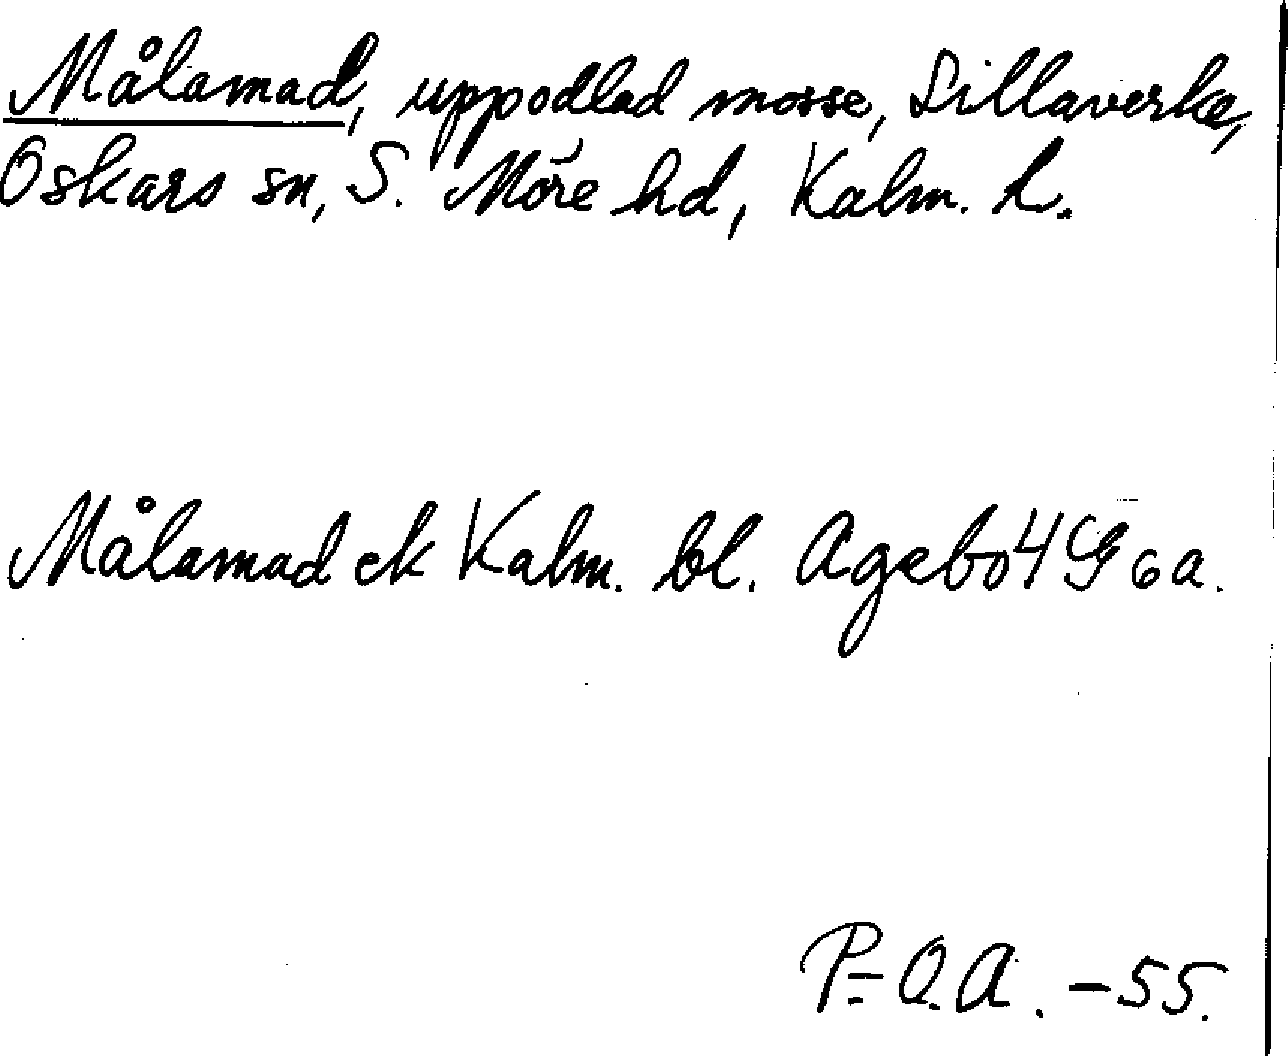 Målamad, uppodlad mosse, Lillaverke,
Oskars sn, S. Möre hd, Kalm. l.
Målamad ek Kalm. bl. Agebo 4 G 6a.
P-O.A. -55.